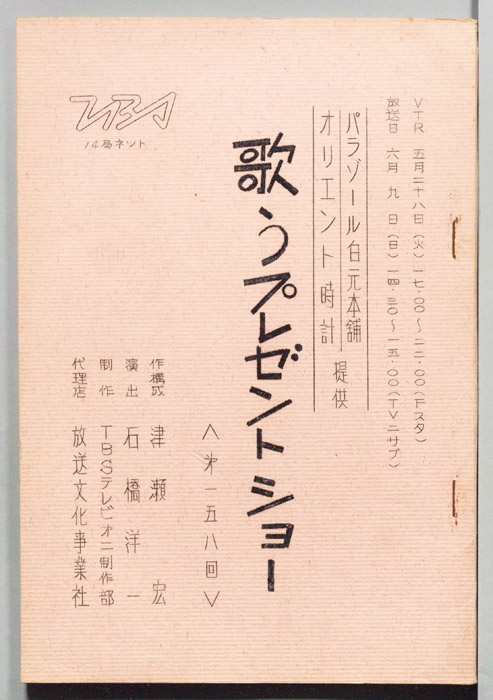 VTR 五月二十八日(火)一七・〇〇〜二二・〇〇(Fスタ)
放送日 六月九日(日)一四・三〇〜一五・〇〇(TVニサブ)
パラゾール白元本舗
オリエント時計
提供
歌うプレゼントショー
〈第一五八回〉
作・構成 津瀬宏
演出 石橋洋一
制作 TBSテレビ第二制作部
代理店 放送文化事業社
TBS
14局ネット